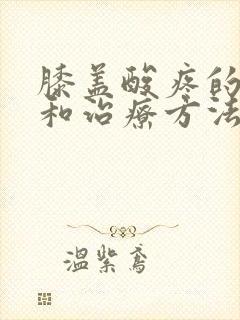 膝盖酸疼的
和治疗方法
温紫鸢